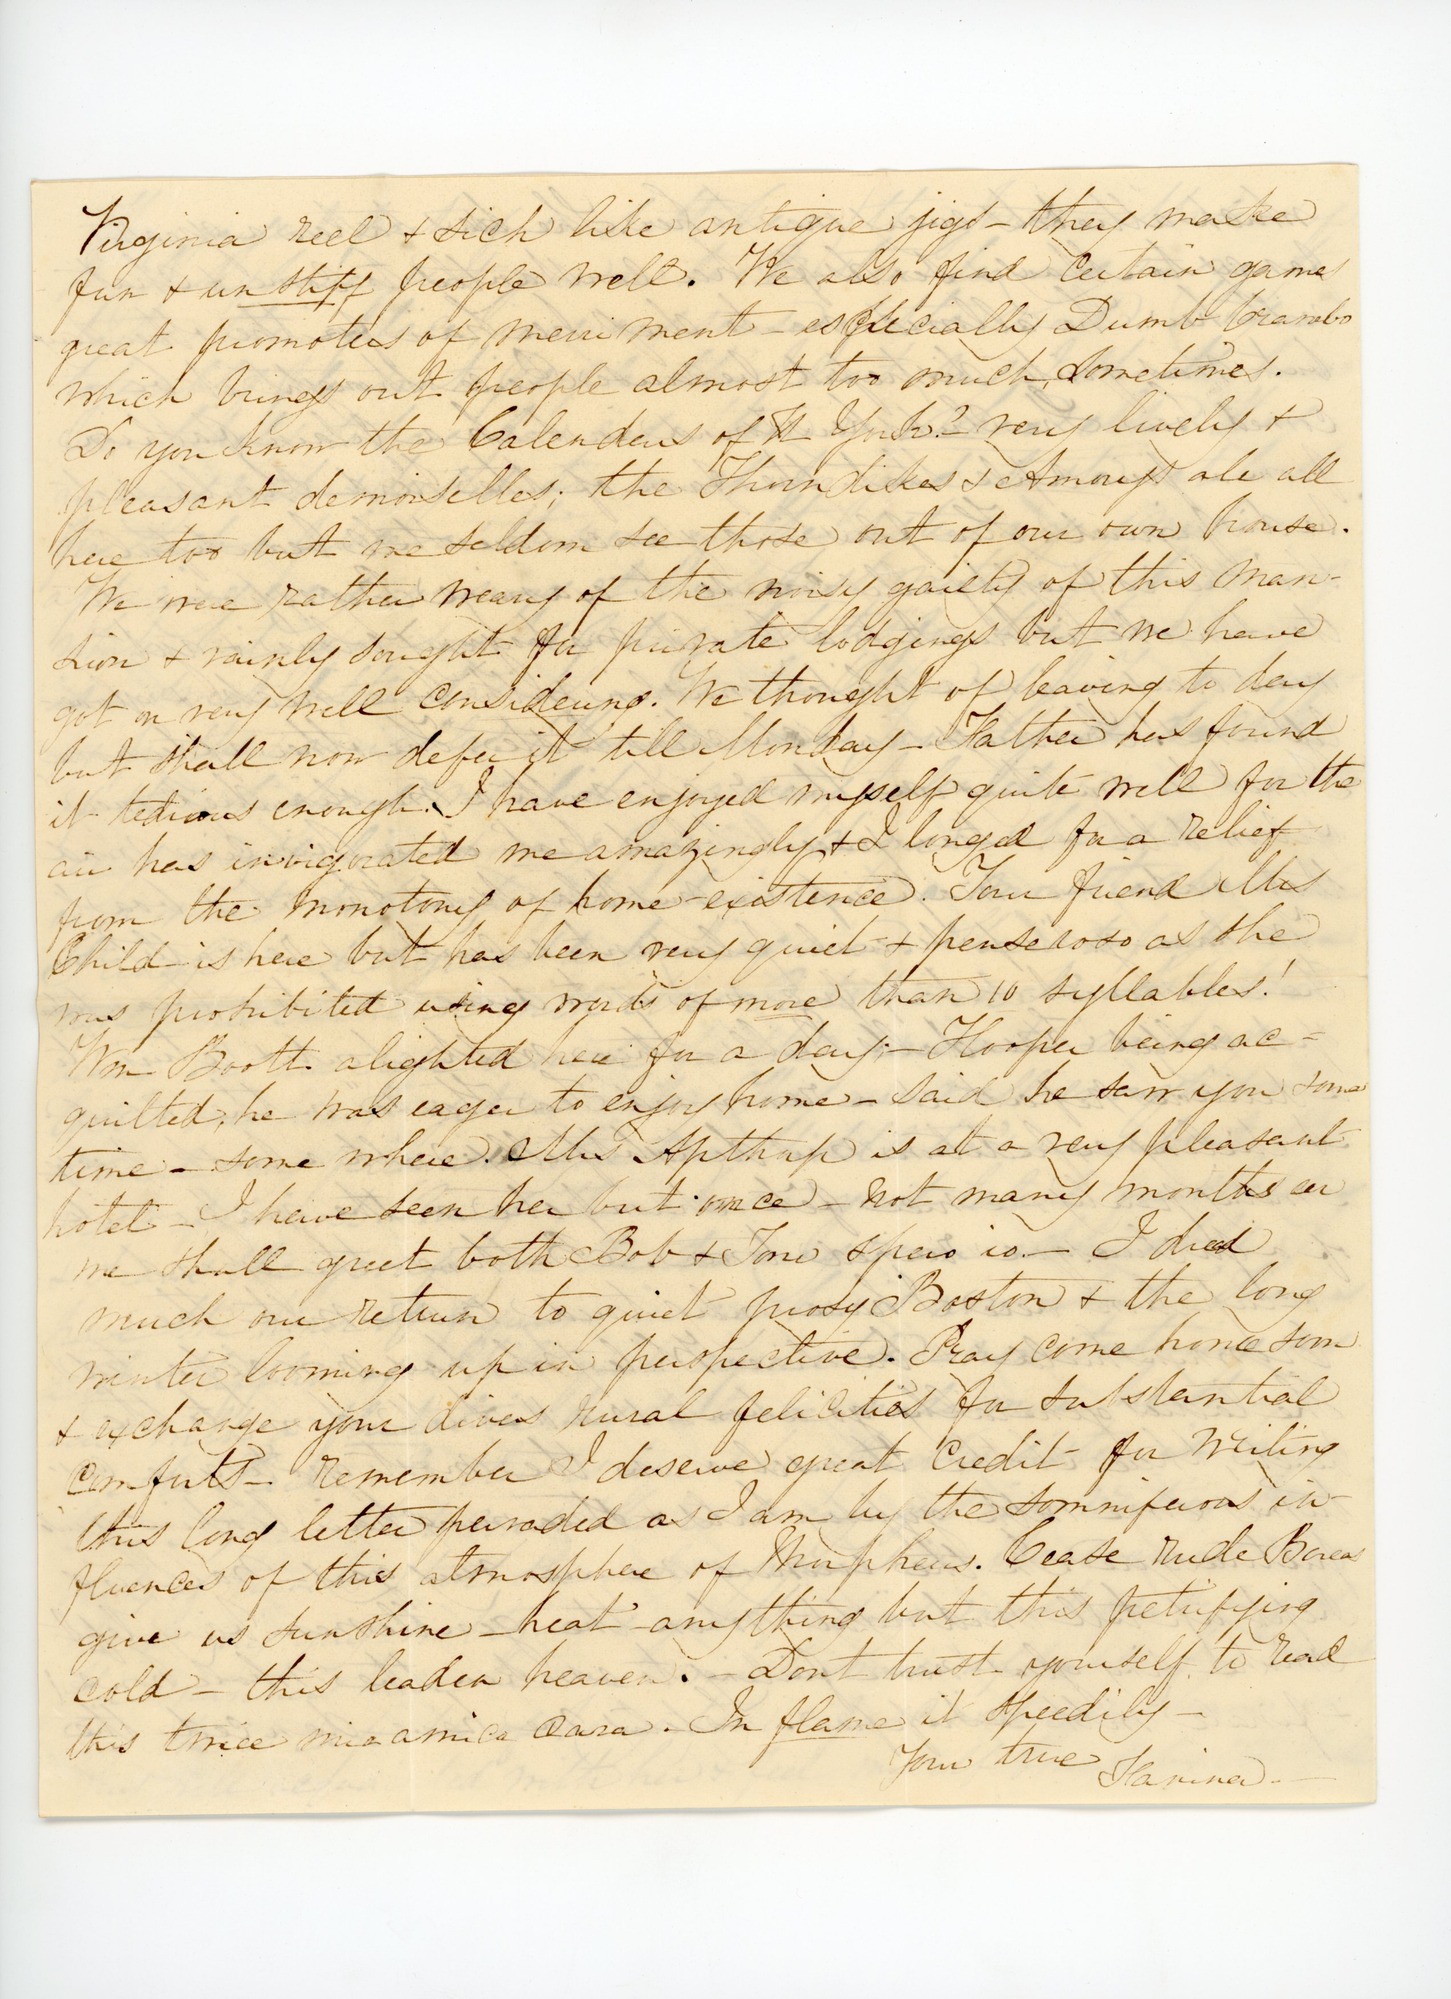 Virginia reel & sich like antique jigs - they make
fun & unstiff people well. We also find certain games
great promoters of merriment - especially Dumb Crambo
which brings out people almost too much, sometimes.
Do you know the Calendars of N York? - very lively &
pleasant demoiselles; the Thorndikes & Amorys are all
here too but we seldom see those out of our own house.
We were rather weary of the noisy gaiety of this man-
sion & vainly sought for private lodgings but we have
got on very well considering. We thought of leaving to day
but shall now defer it till Monday - Father has found
it tedious enough. I have enjoyed myself quite well for the
air has invigorated me amazingly & I longed for a relief
from the monotony of home-existence. Your friend Mrs
Child is here but has been very quiet & penseroso as she
was prohibited using words of more than 10 syllables!
Wm Boott alighted here for a day; - Hooper being ac=
quitted, he was eager to enjoy home - said he saw you some
time - some where. Mrs Apthorp is at a very pleasant
hotel - I have seen her but once - not many months ere
we shall greet both Bob & Tom spero io. - I dread
much our return to quiet prosy Boston & the long
winter looming up in perspective. Pray come home soon
& exchange your divers rural felicities for substantial
comforts - remember I deserve great credit for writing
this long letter pervaded as I am by the somniferous in-
fluences of this atmosphere of Morpheus. Cease rude Boreas
give us sunshine - heat - anything but this petrifying
cold - this leaden heaven. - Dont trust yourself to read
this twice mia amica cara - In flame it speedily -
Your true